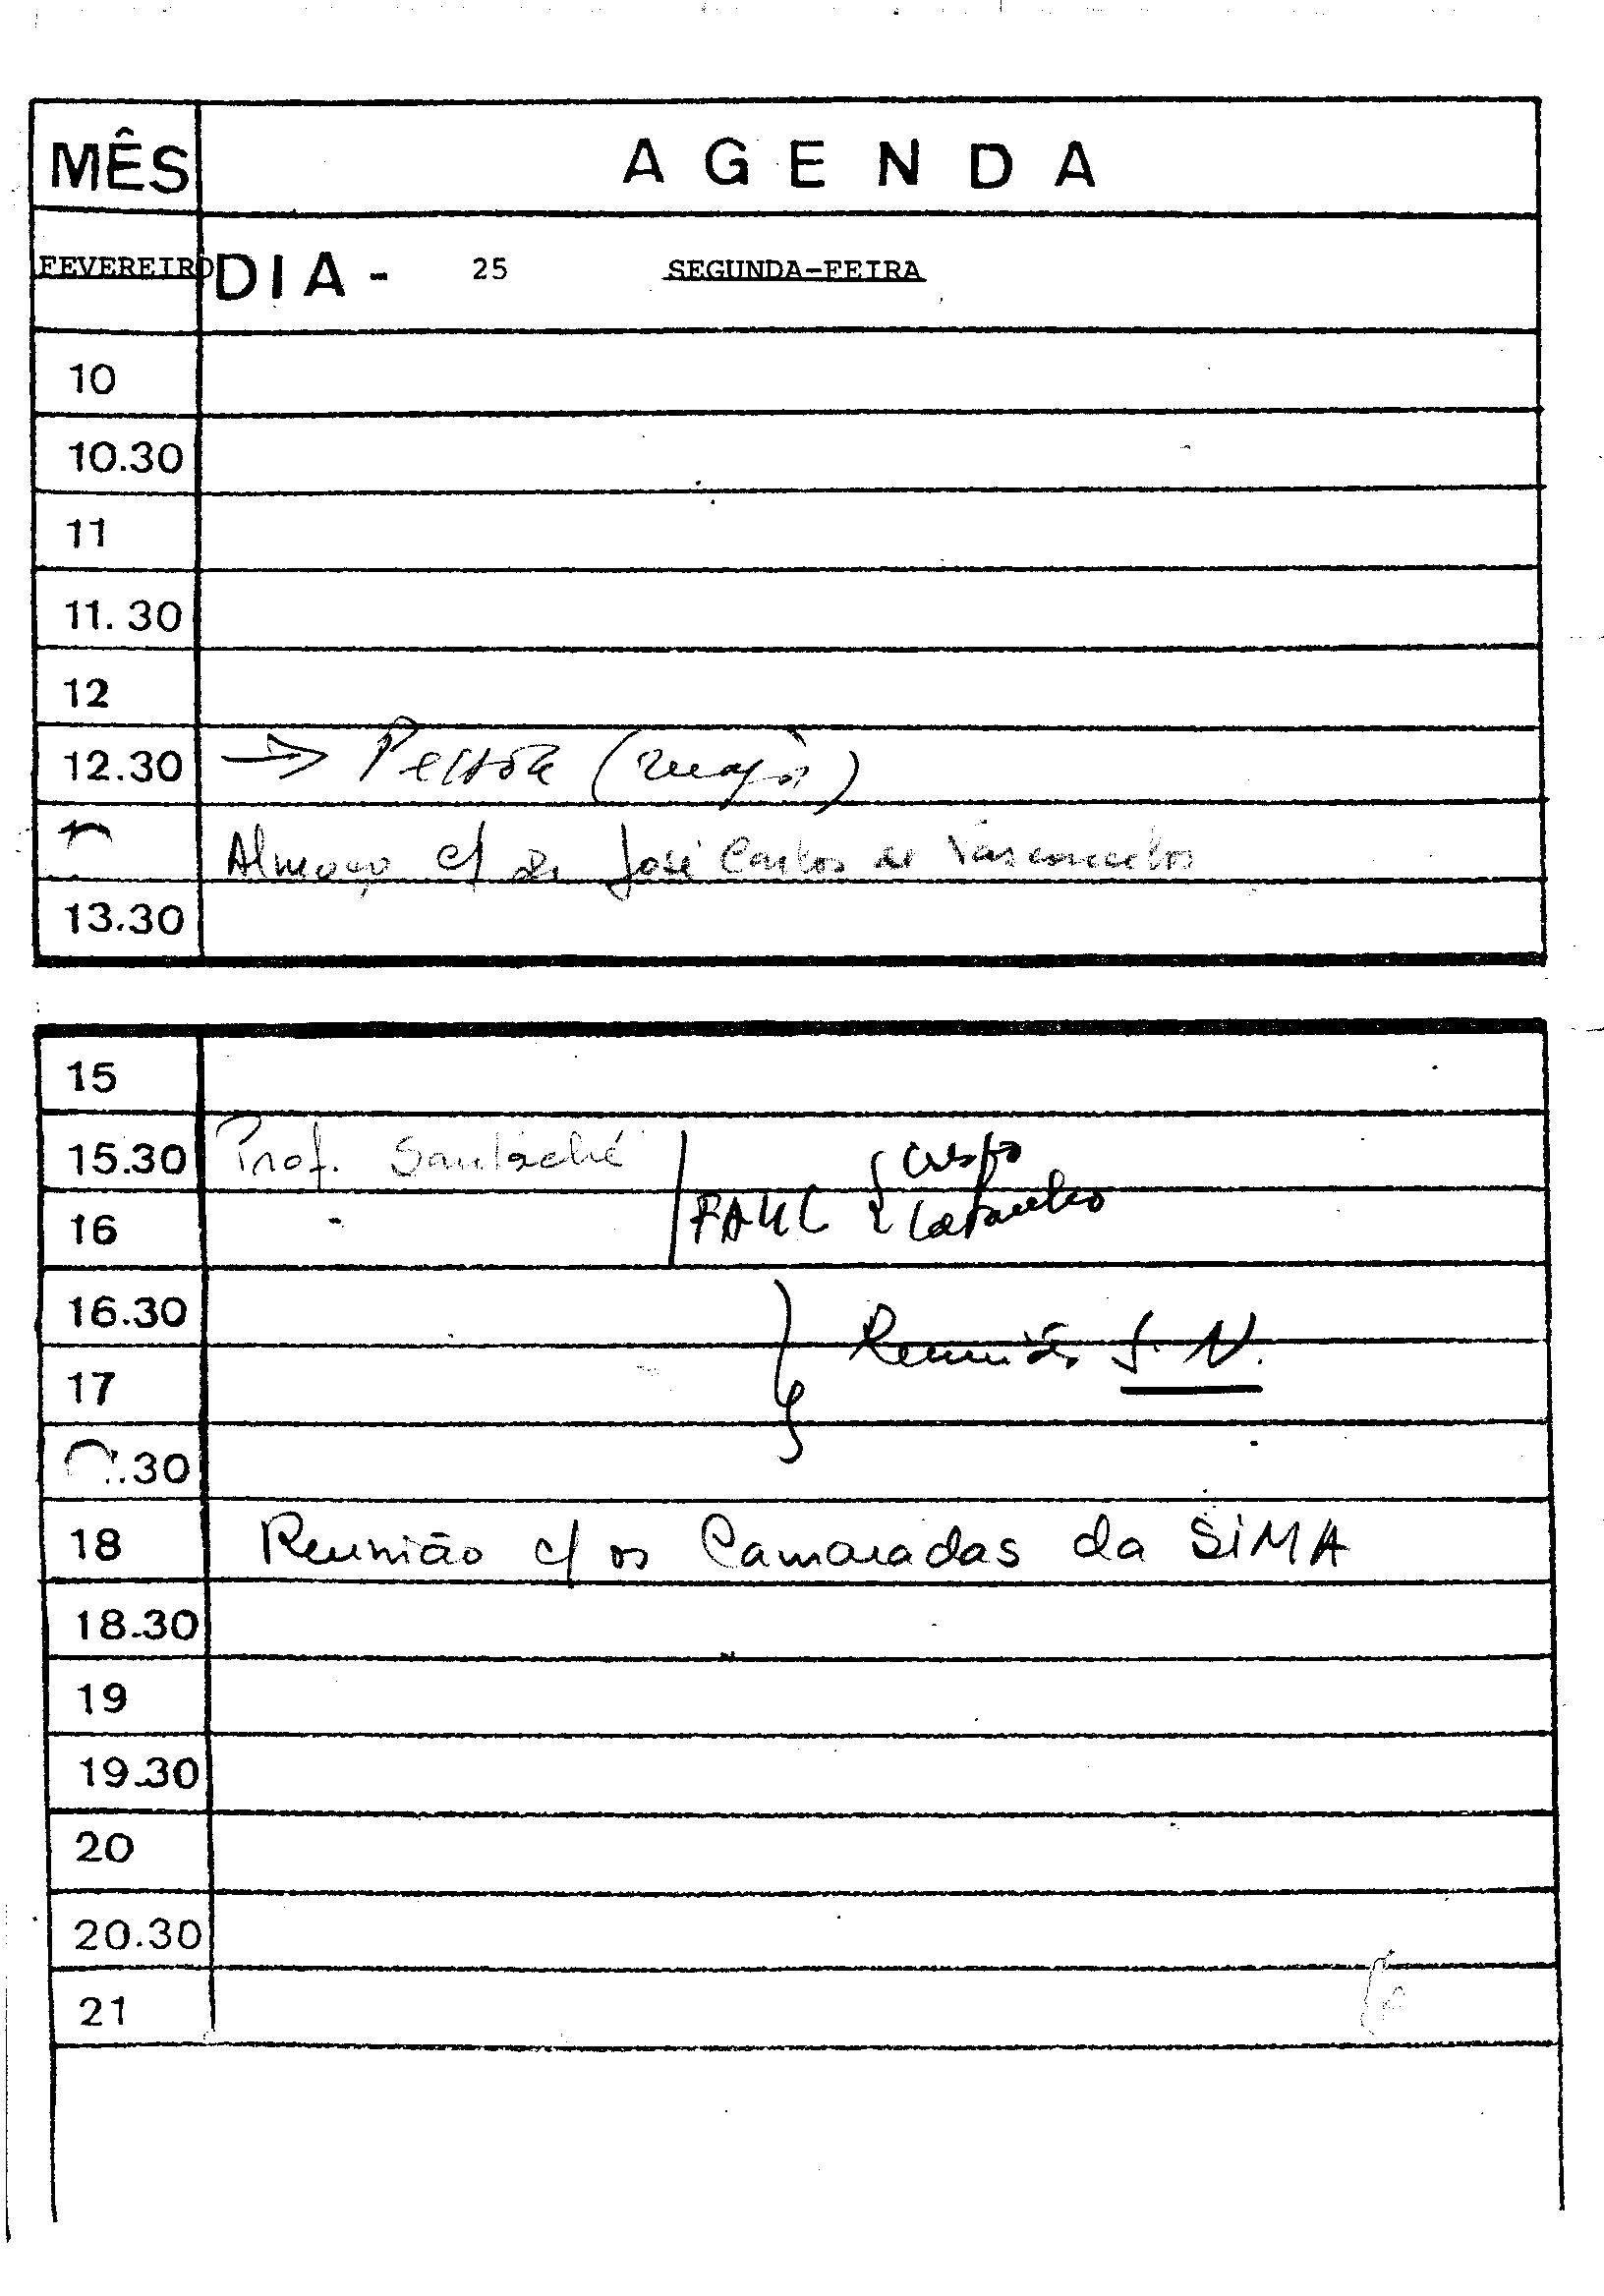 MÊS AGENDA
FEVEREIRO DIA - 25 SEGUNDA-FEIRA
10
10.30
11
11.30
12
12.30 → Pessoa
Almoço c/ Dr José Carlos de Vasconcelos
13.30
15
15.30 Prof. Crespo
16
16.30
Reunião S. N.
17
.30
18 Reunião c/ os Camaradas da SIMA
18.30
19
19.30
20
20.30
21